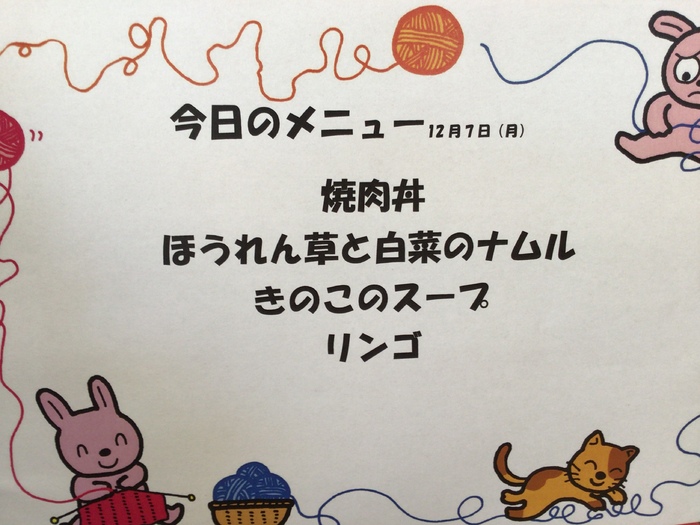 今日のメニュー12月7日（月）
焼肉丼
ほうれん草と白菜のナムル
きのこのスープ
リンゴ